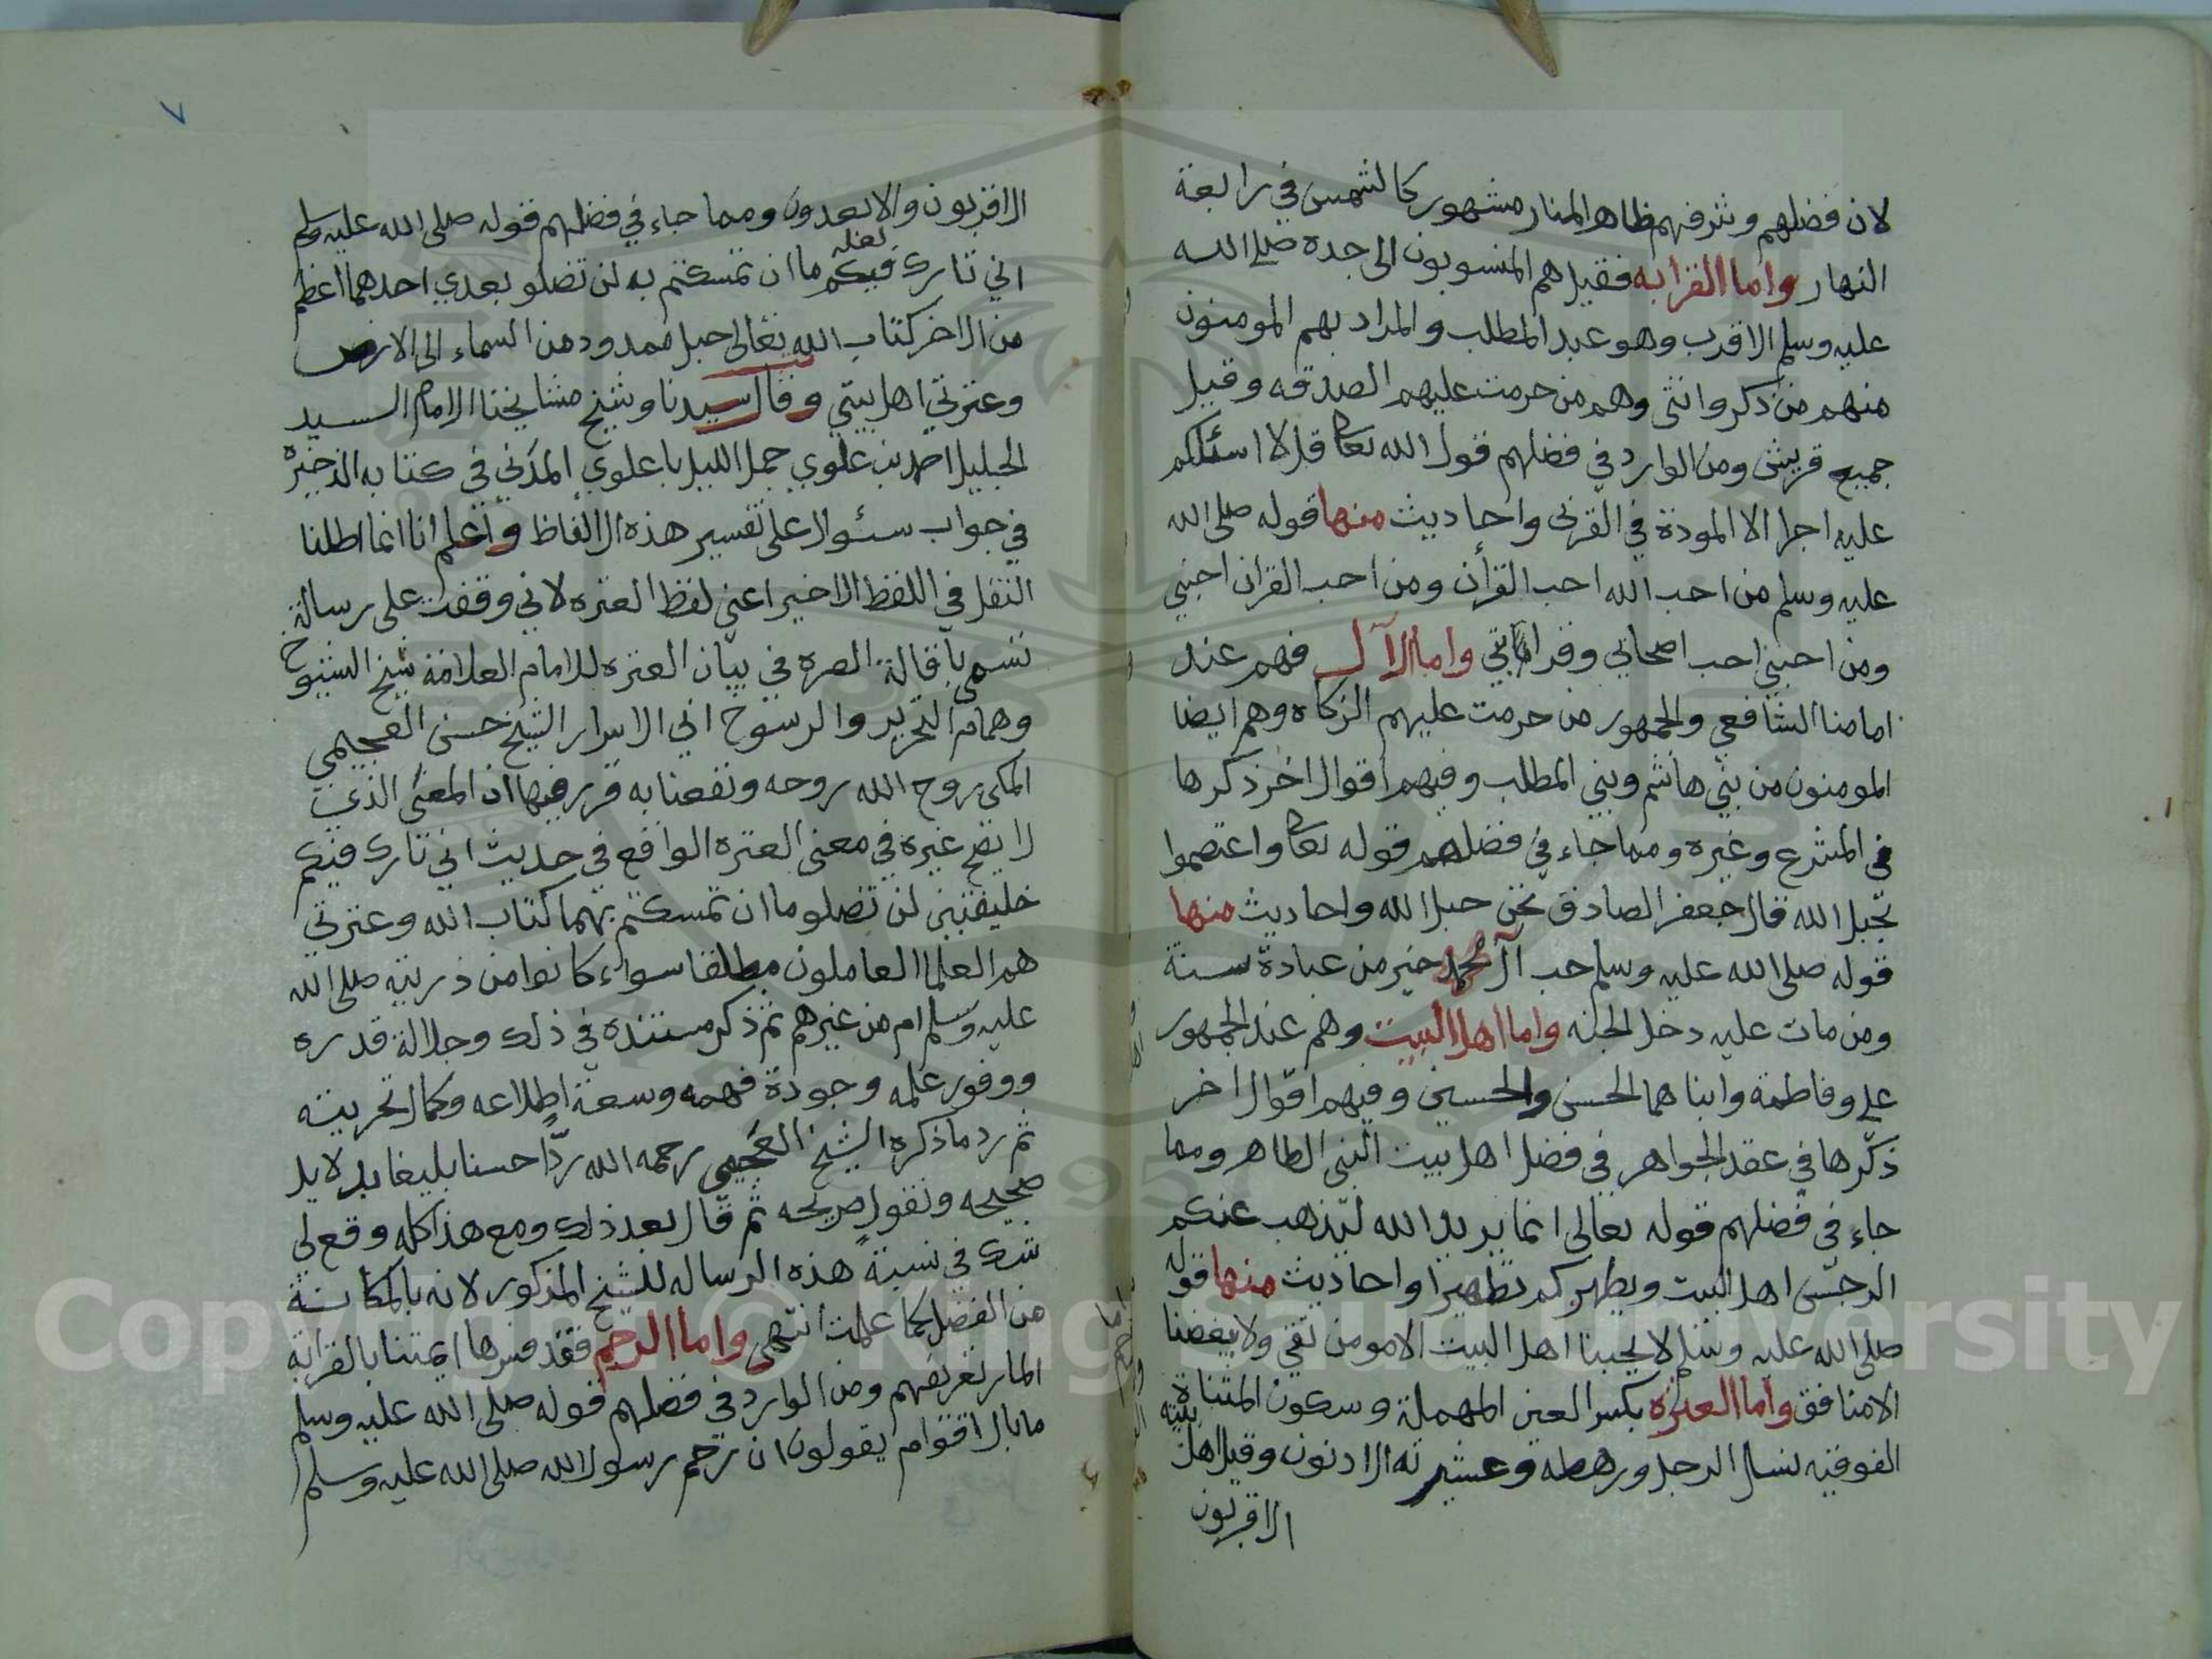 لان فضلهم وشرفهم ظاهر المنار مشهور كالشمس في رابعة
النهار واما القرابه فقيل هم المنسوبون الى جده صلى الله
عليه وسلم الاقرب وهو عبد المطلب والمراد بهم المومنون
منهم من ذكر وانثى وهم من حرمت عليهم الصدقه وقيل
جميع قريش ومن الوارد في فضلهم قول الله تعا قل لا اسئلكم
عليه اجرا الا المودة في القربى واحاديث منها قوله صلى الله
عليه وسلم من احب الله احب القرأن ومن احب القران احبني
ومن احبني احب اصحابي وقرابتي واما الآل فهم عند
امامنا الشافعي والجمهور من حرمت عليهم الزكاه وهم ايضا
المومنون من بني هاشم وبني المطلب وفيهم اقوال اخر ذكرها
في المشرع وغيره ومما جاء في فضلهم قوله تعا واعتصموا
بحبل الله قال جعفر الصادق نحن حبل الله واحاديث منها
قوله صلى الله عليه وسلم حب آل محمد خير من عبادة سنة
ومن مات عليه دخل الجنه واما اهل البيت وهم عند الجمهور
علي وفاطمة وابناهما الحسن والحسين وفيهم اقوال اخر
ذكرها في عقد الجواهر في فضل اهل بيت النبى الطاهر ومما
جاء في فضلهم قوله تعالى انما يريد الله ليذهب عنكم
الرجس اهل البيت ويطهركم تطهيرا واحاديث منها قوله
صلى الله عليه وسلم لا يحبنا اهل البيت الا مومن تقي ولا يبغضنا
الا منافق واما العتره بكسر العين المهملة وسكون المثناة
الفوقيه نسل الرجل ورهطه وعشيرته الادنون وقيل اهل بيته
الاقربون
٧
الاقربون والابعدون ومما جاء في فضلهم قوله صلى الله عليه وسلم
اني تارك فيكم ما ان تمسكتم به لن تضلو بعدي احدهما اعظم
من الاخر كتاب الله تعالى حبل ممدود من السماء الى الارض
وعترتي اهل بيتي وقال سيدنا وشيخ مشايخنا الامام السيد
الجليل احمد بن علوي جمل الليل باعلوي المدني في كتابه الذخيره
في جواب سئوال على تفسير هذه الالفاظ واعلم انا انما اطلنا
النقل في اللفظ الاخير اعني لفظ العتره لاني وقفت على رسالة
تسمى باقالة العره في بيان العتره للامام العلامة شيخ الشيوخ
وهمام التحرير والرسوخ ابي الاسرار الشيخ حسن العجيمي
المكى روح الله روحه ونفعنا به قرر فيها ان المعنى الذي
لا يصح غيره في معنى العتره الواقع في حديث اني تارك فيكم
خليفتين لن تضلو ما ان تمسكتم بهما كتاب الله وعترتي
هم العلما العاملون مطلقا سواء كانوا من ذريته صلى الله
عليه وسلم ام من غيرهم ثم ذكر مستنده في ذلك وجلالة قدره
ووفور علمه وجودة فهمه وسعة اطلاعه وكمال تحريته
ثم رد ما ذكره الشيخ العجيمي رحمه الله ردّا حسنا بليغا بدلايل
صحيحه ونقول صريحه ثم قال بعد ذلك ومع هذا كله وقع لي
شك في نسبة هذه الرساله للشيخ المذكور لانه بالمكانة
من الفضل كما علمت انتهى واما الرحم فقد فسرها ايمتنا بالقرابة
المار تعريفهم ومن الوارد في فضلهم قوله صلى الله عليه وسلم
ما بال اقوام يقولون ان رحم رسول الله صلى الله عليه وسلم
Copyright © King Saud University